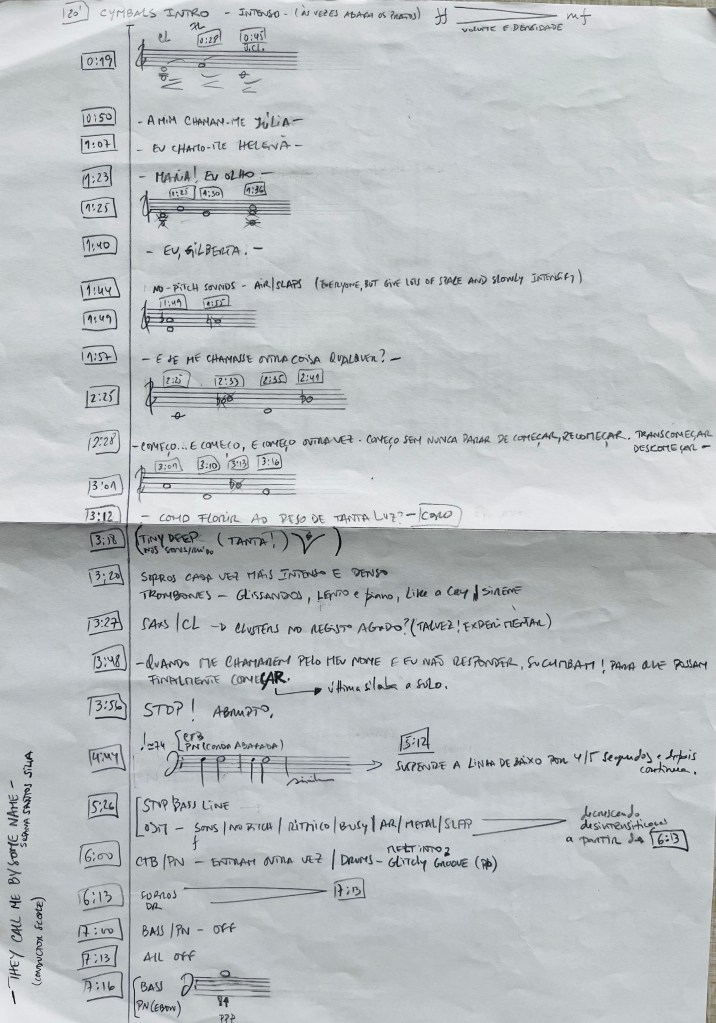 20' CYMBALS INTRO - INTENSO - (ÀS VEZES ABAFA OS PRATOS) ff mf
VOLUME E DENSIDADE
CL FL 0:28 0:45
0:19
0:50 - A MIM CHAMAM-ME JÚLIA -
1:07 - EU CHAMO-ME HELENA -
1:23 - MARIA! EU OLHO -
1:25 1:25 1:30 1:36
1:40 - EU, GILBERTA. -
1:44 NO-PITCH SOUNDS - AIR/SLAPS (EVERYONE, BUT GIVE LOTS OF SPACE AND SLOWLY INTENSIFY)
1:49 1:49 1:55
1:57 - E SE ME CHAMASSE OUTRA COISA QUALQUER? -
2:25 2:25 2:33 2:35 2:41
2:28 - COMEÇO... E COMEÇO, E COMEÇO OUTRA VEZ. COMEÇO SEM NUNCA PARAR DE COMEÇAR, RECOMEÇAR. TRANSCOMEÇAR
DESCOMEÇAR -
3:01 3:01 3:10 3:13 3:16
3:12 - COMO FLORIR AO PESO DE TANTA LUZ? - CORO
3:18 (TINY DEEP (TANTA!) )
3:20 SOPROS CADA VEZ MAIS INTENSO E DENSO
TROMBONES - GLISSANDOS, LENTO e piano, LIKE A CRY / SIRENE
3:27 SAXS/CL → CLUSTERS NO REGISTO AGUDO? (TALVEZ! EXPERIMENTAR)
3:48 - QUANDO ME CHAMAREM PELO MEU NOME E EU NÃO RESPONDER, SUCUMBAM! PARA QUE POSSAM
FINALMENTE COMEÇAR.
última sílaba a SOLO.
3:56 STOP! ABRUPTO.
4:44 ♩=74 CTB
PN (CORDA ABAFADA)
simile
5:12
SUSPENDE A LINHA DE BAIXO POR 4/5 segundos e depois
continua.
5:26 STOP BASS LINE
ODM - SONS/NO PITCH/RITMICO/BUSY/AR/METAL/SLAP
f
decrescendo
desintensificar
a PARTIR do 6:13
6:00 CTB/PN - ENTRAM OUTRA VEZ / DRUMS - MELT INTO 2
GLITCHY GROOVE (PP)
6:13 SOPROS
DR 7:13
7:00 BASS/PN - OFF
7:13 ALL OFF
7:16 BASS
PN (EBOW)
PPP
- THEY CALL ME BY SOME NAME -
SANTOS SILVA
(CONDUCTOR SCORE)